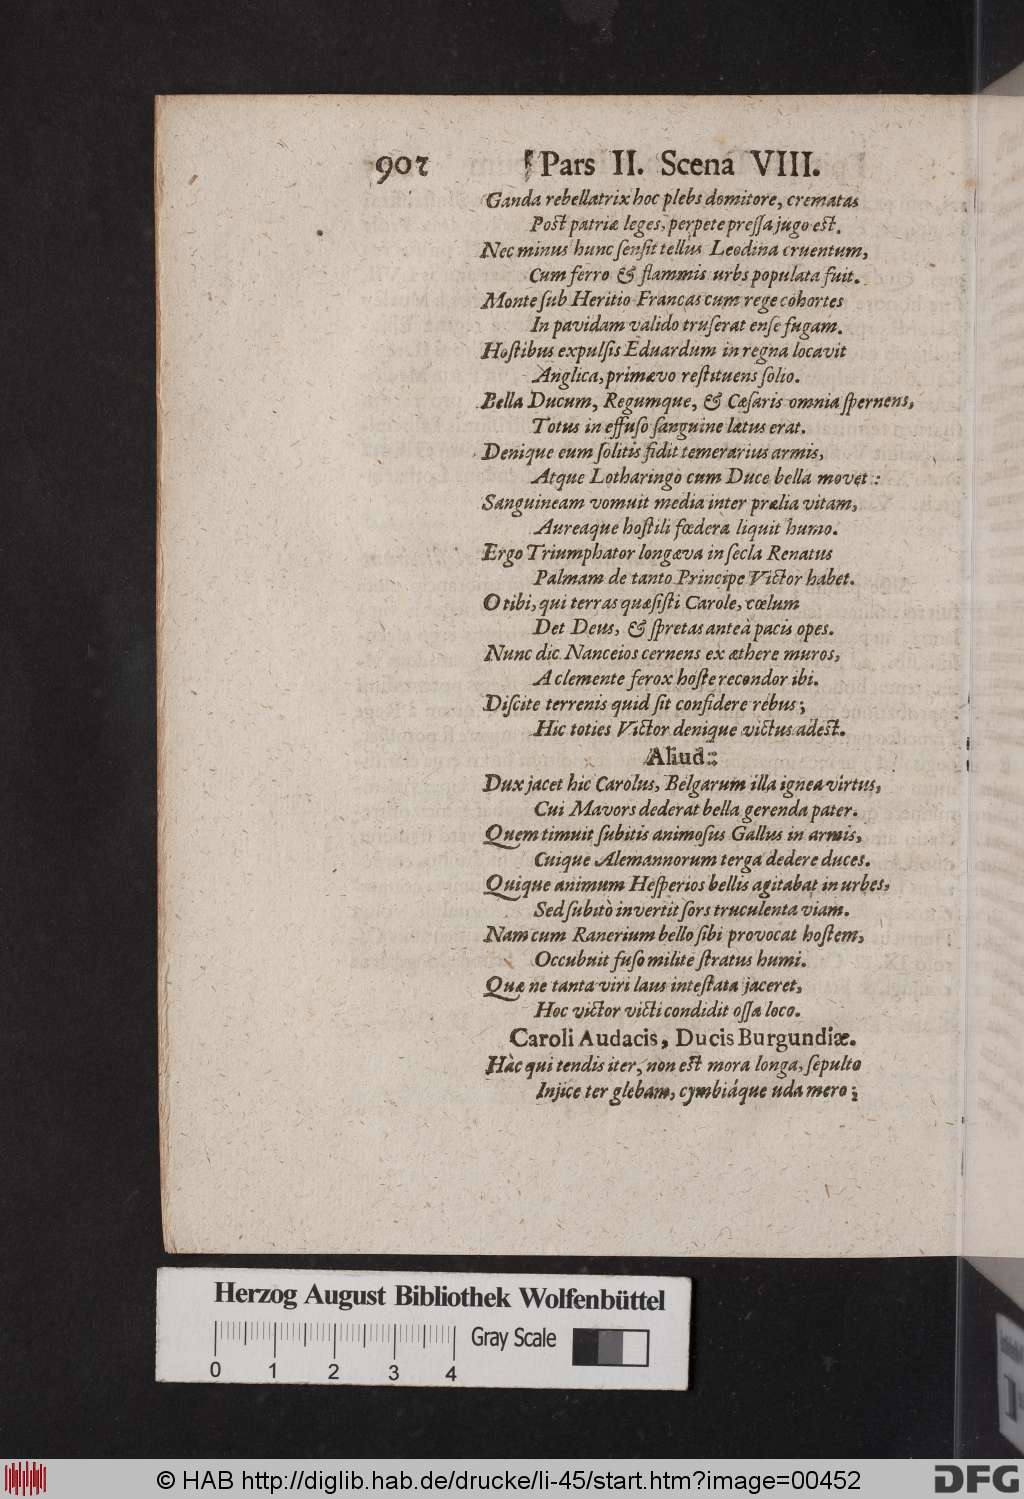 902 Pars II. Scena VIII.
Ganda rebellatrix hoc plebs domitore, crematas
Post patriæ leges, perpete preſſa jugo eſt.
Nec minus hunc ſenſit tellus Leodina cruentum,
Cum ferro & flammis urbs populata fuit.
Monte ſub Heritio Francas cum rege cohortes
In pavidam valido truſerat enſe fugam.
Hoſtibus expulſis Eduardum in regna locavit
Anglica, primævo reſtituens ſolio.
Bella Ducum, Regumque, & Cæſaris omnia ſpernens,
Totus in effuſo ſanguine lætus erat.
Denique eum ſolitis fidit temerarius armis,
Atque Lotharingo cum Duce bella movet:
Sanguineam vomuit media inter prælia vitam,
Aureaque hoſtili fœdera liquit humo.
Ergo Triumphator longæva in ſecla Renatus
Palmam de tanto Principe Victor habet.
O tibi, qui terras quæſiſti Carole, cœlum
Det Deus, & ſpretas anteà pacis opes.
Nunc dic Nanceios cernens ex æthere muros,
A clemente ferox hoſte recondor ibi.
Diſcite terrenis quid ſit confidere rebus;
Hic toties Victor denique victus adeſt.
Aliud:
Dux jacet hic Carolus, Belgarum illa ignea virtus,
Cui Mavors dederat bella gerenda pater.
Quem timuit ſubitis animoſus Gallus in armis,
Cuique Alemannorum terga dedere duces.
Quique animum Heſperios bellis agitabat in urbes,
Sed ſubitò invertit ſors truculenta viam.
Nam cum Ranerium bello ſibi provocat hoſtem,
Occubuit fuſo milite ſtratus humi.
Quæ ne tanta viri laus inteſtata jaceret,
Hoc victor victi condidit oſſa loco.
Caroli Audacis, Ducis Burgundiæ.
Hàc qui tendis iter, non eſt mora longa, ſepulto
Injice ter glebam, cymbiáque uda mero;
Herzog August Bibliothek Wolfenbüttel
Gray Scale
0 1 2 3 4
© HAB http://diglib.hab.de/drucke/li-45/start.htm?image=00452
DFG